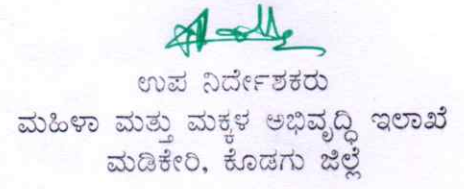 ಉಪ ನಿರ್ದೇಶಕರು
ಮಹಿಳಾ ಮತ್ತು ಮಕ್ಕಳ ಅಭಿವೃದ್ಧಿ ಇಲಾಖೆ
ಮಡಿಕೇರಿ, ಕೊಡಗು ಜಿಲ್ಲೆ